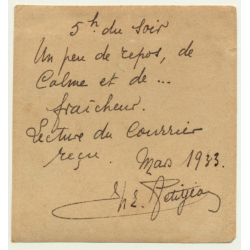 5h du soir
Un peu de repos, de
Calme et de ...
fraîcheur.
Lecture du Courrier
reçu. Mars 1933.